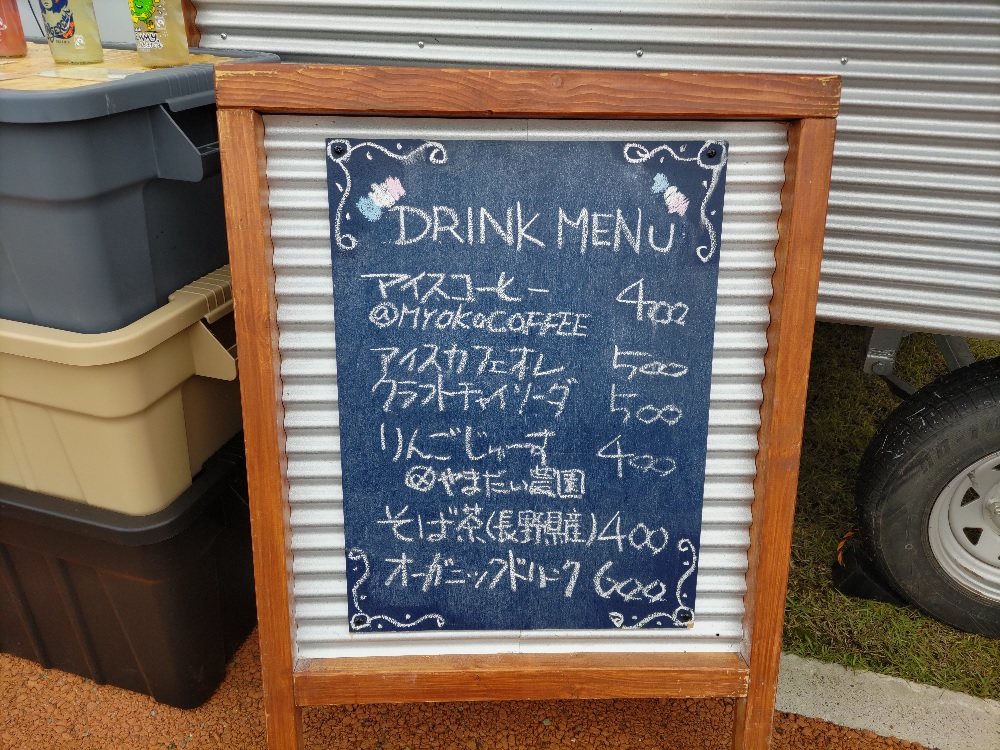 DRINK MENU
アイスコーヒー 400
@MYOKOCOFFEE
アイスカフェオレ 500
クラフトチャイソーダ 500
りんごじゅーす 400
@やまだい農園
そば茶(長野県産) 400
オーガニックドリンク 600